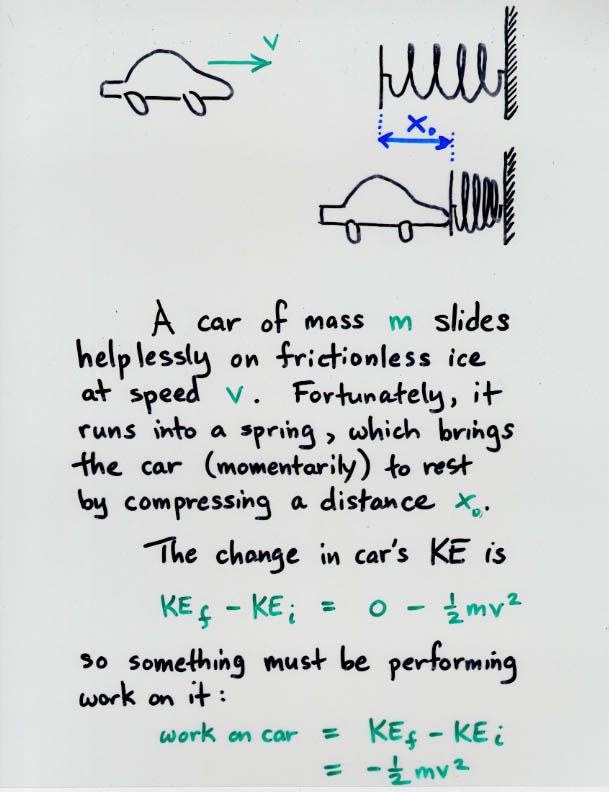 v
x₀
A car of mass m slides
helplessly on frictionless ice
at speed v. Fortunately, it
runs into a spring, which brings
the car (momentarily) to rest
by compressing a distance x₀.
The change in car's KE is
KE_f - KE_i = 0 - ½mv²
so something must be performing
work on it:
work on car = KE_f - KE_i
= -½mv²